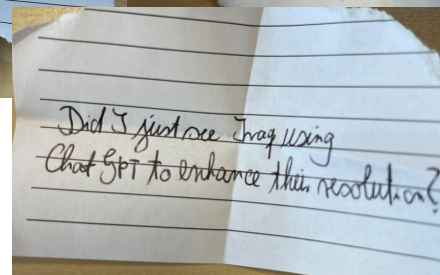 Did I just see Iraq using
ChatGPT to enhance their resolution?